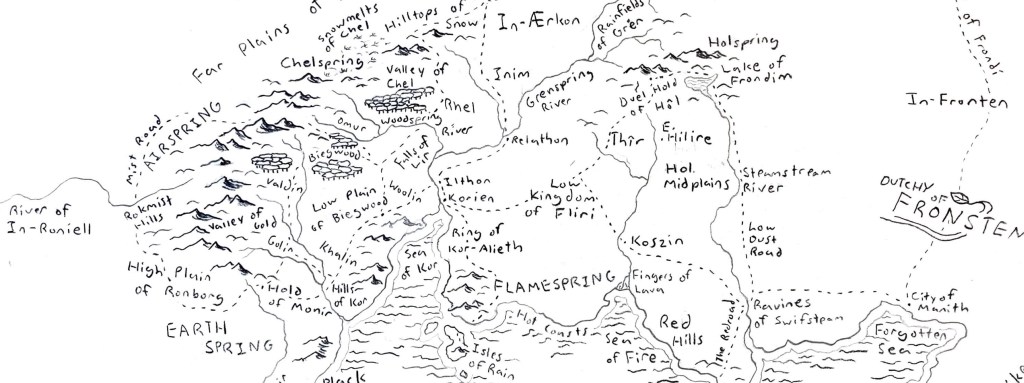 Far Plains of
Snowmelts
of Chel
Hilltops of
Snow
In-Ærkon
Rainfields
of Gren
of Frondi
Holspring
Chelspring
Valley of
Chel
Inim
Grenspring
River
Lake of
Frondim
Duel Hold
of Hâl
In-Fronten
Mist Road
AIRSPRING
Omur
Woodspring
Rhel
River
Relathon
Thîr
E.
Hilire
Biegwood
Falls of
Lir
Valdin
Low Plain
of Biegwood
Woolin
Ilthon
Korien
Low
Kingdom
of Fliri
Hol.
Midplains
Steamstream
River
DUTCHY
OF
FRONSTEN
River of
In-Roniell
Rokmist
Hills
Valley of
Gold
Golin
Khalin
Sea
of Kor
Ring of
Kor-Alieth
Koszin
Low
Dust
Road
High Plain
of Ronborg
Hold
of Monir
Hills
of Kor
FLAMESPRING
Fingers of
Lava
City of
Manith
EARTH
SPRING
Hot Coasts
Sea
of Fire
Red
Hills
The Redroad
Ravines
of Swifstean
Forgotten
Sea
Isles
of Rain